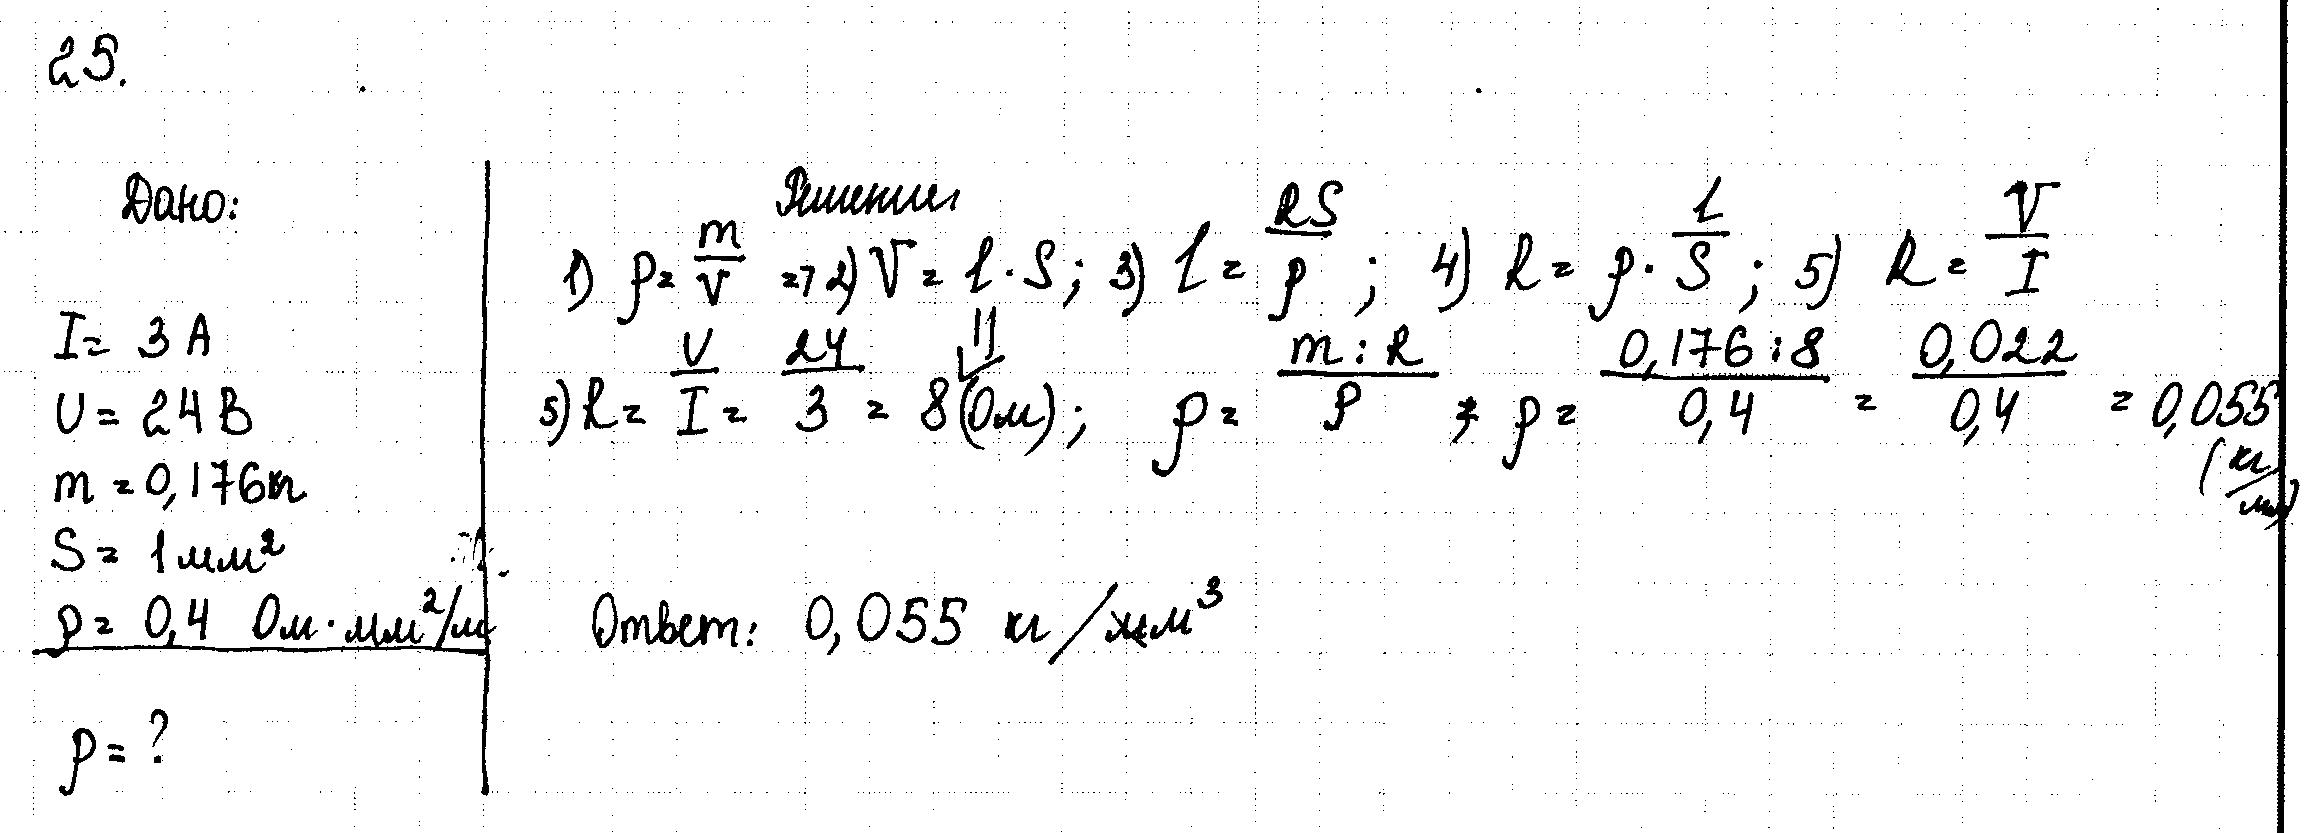 25.
Дано:
I = 3 А
U = 24 В
m = 0,176 кг
S = 1 мм²
ρ = 0,4 Ом · мм²/м
ρ = ?
Решение
1) ρ = m/V => 2) V = l · S; 3) l = RS/ρ; 4) R = ρ · l/S; 5) R = V/I
5) R = U/I = 24/3 = 8 (Ом); ρ = m : R/ρ ; ρ = 0,176 : 8/0,4 = 0,022/0,4 = 0,055 (кг/мм)
Ответ: 0,055 кг/мм³